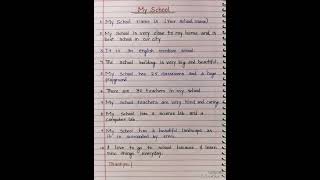 My School
1. My School name is (Your school name)
2. My school is very close to my home and is
best school in our city
3. It is an english medium school.
4. The School building is very big and beautiful.
5. My School has 25 classrooms and a large
playground
6. There are 30 teachers in my school
7. My school teachers are very kind and caring
8. My School has a science lab and a
computer lab.
9. My School has a beautiful landscape as
it is surrounded by trees.
10. I love to go to school because I learn
new things everyday.
Thankyou!